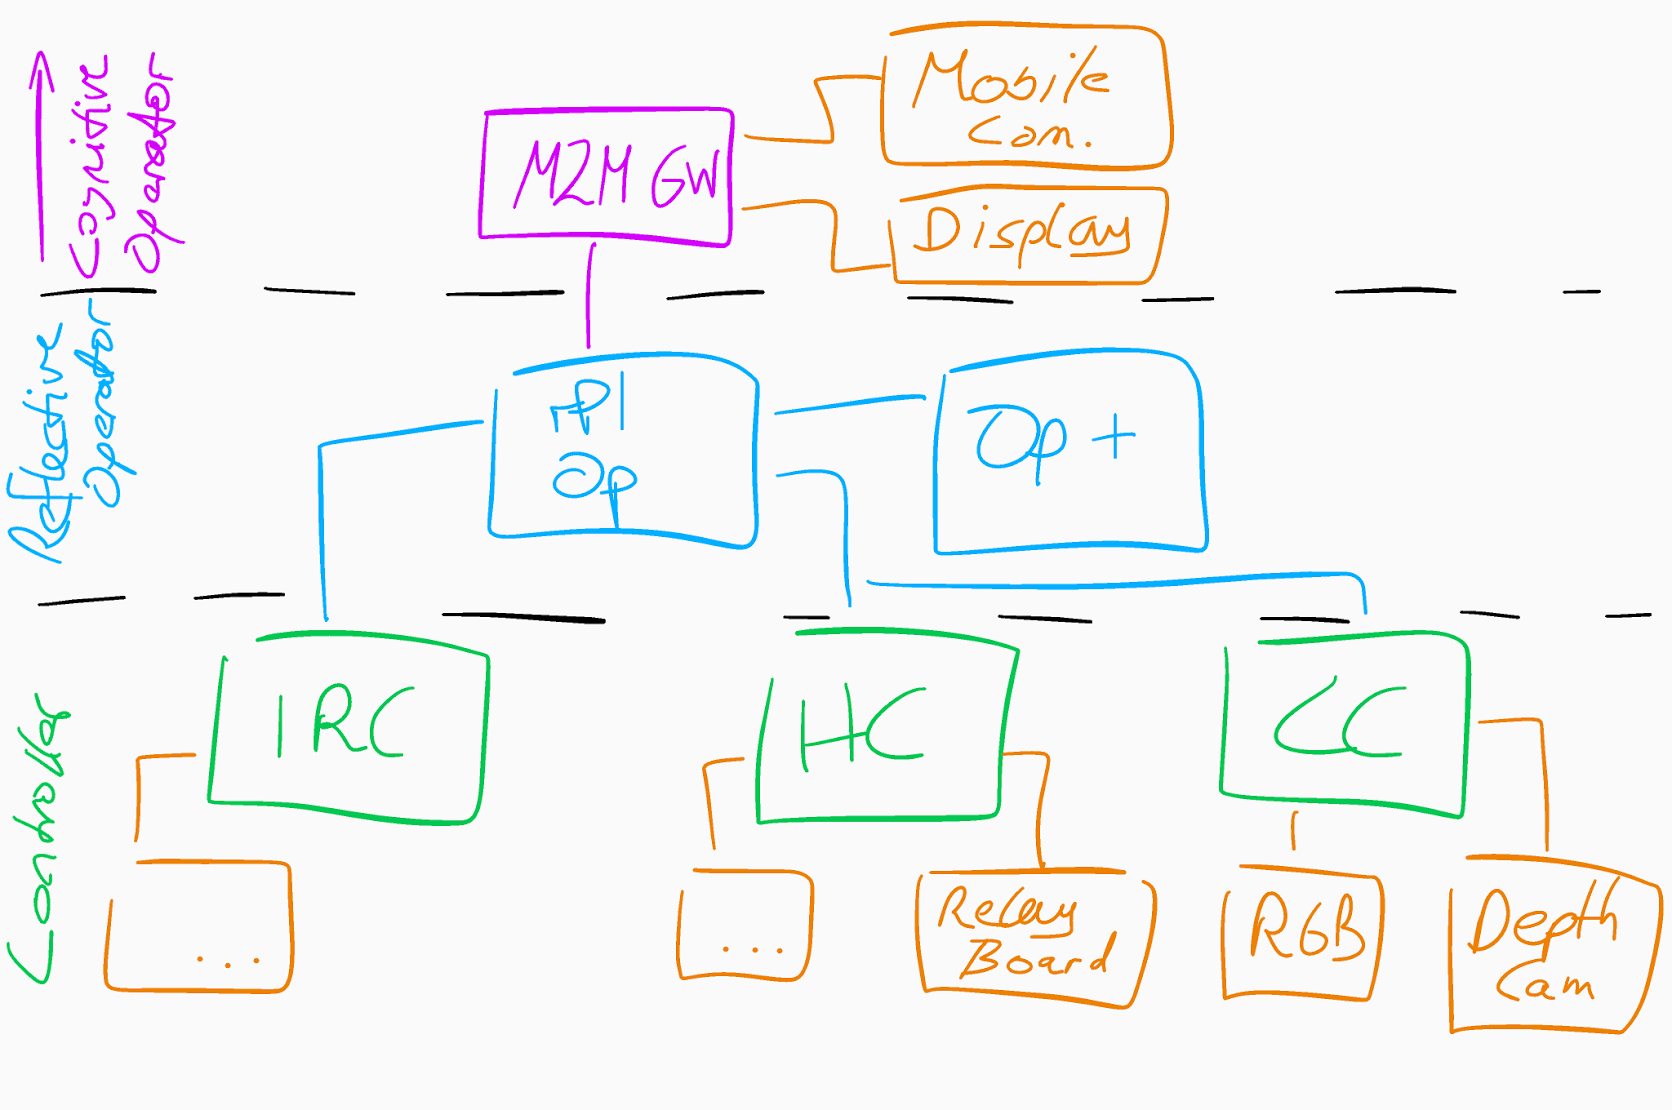 Cognitive
Operator
M2M GW
Mobile
Com.
Display
Reflective
Operator
rPI
Op
Op +
Controller
IRC
HC
CC
...
...
Relay
Board
RGB
Depth
Cam